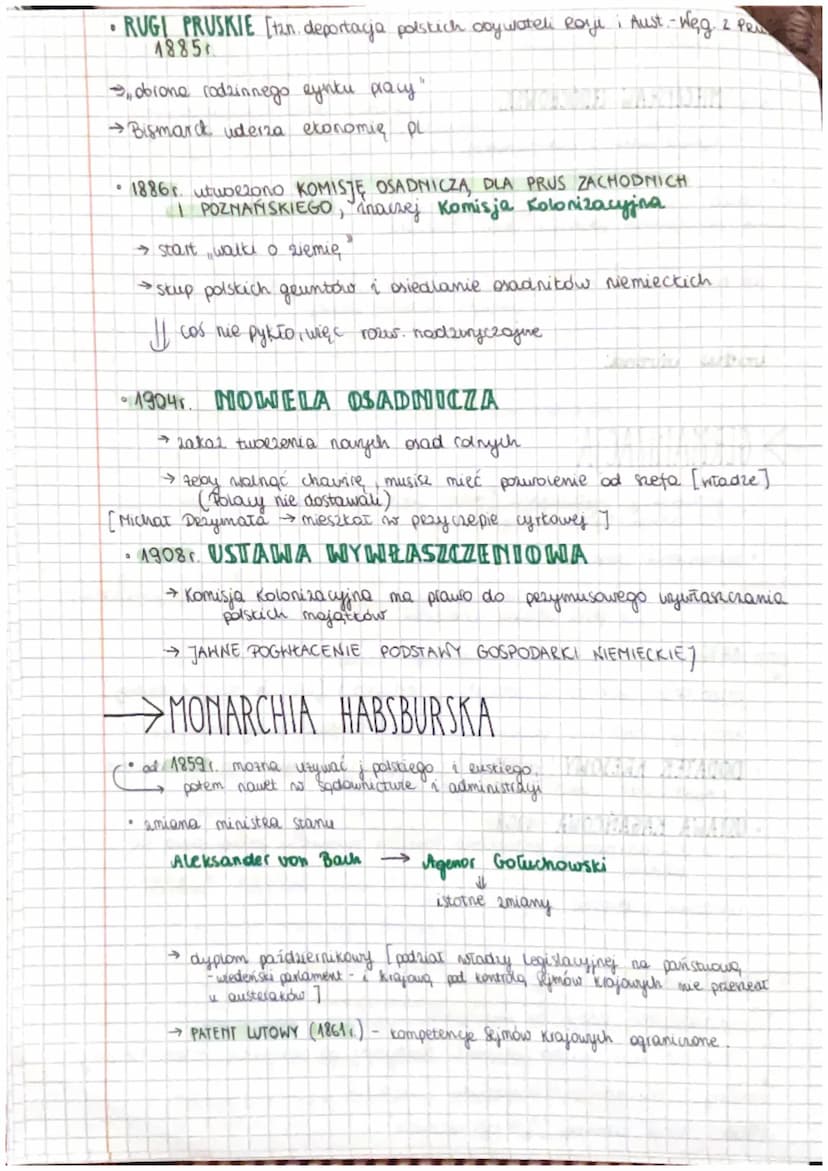 • RUGI PRUSKIE [tzn. deportacja polskich obywateli Rosji i Aust.-Węg. z Prus
1885r.
→ „obrona rodzinnego rynku pracy"
→ Bismarck uderza ekonomię PL
• 1886r. utworzono KOMISJĘ OSADNICZĄ DLA PRUS ZACHODNICH
I POZNAŃSKIEGO, inaczej Komisja Kolonizacyjna
→ start „walki o ziemię"
→ skup polskich gruntów i osiedlanie osadników niemieckich
⇓ coś nie pykło, więc rozw. nadzwyczajne
• 1904r. NOWELA OSADNICZA
→ zakaz tworzenia nowych osad rolnych
→ żeby walnąć chawirę, musisz mieć pozwolenie od szefa [władze]
(Polacy nie dostawali)
[Michał Drzymała → mieszkał w przyczepie cyrkowej]
• 1908r. USTAWA WYWŁASZCZENIOWA
→ Komisja Kolonizacyjna ma prawo do przymusowego wywłaszczania
polskich majątków
→ JAWNE POGWŁACENIE PODSTAWY GOSPODARKI NIEMIECKIEJ
→ MONARCHIA HABSBURSKA
• od 1859r. można używać j. polskiego i ruskiego,
→ potem nawet w sądownictwie i administracji
• zmiana ministra stanu
Aleksander von Bach → Agenor Gołuchowski
⇓
istotne zmiany
→ dyplom październikowy [podział władzy legislacyjnej na państwową
- wiedeński parlament - i krajową pod kontrolą Sejmów krajowych nie
u austriaków]
→ PATENT LUTOWY (1861r.) - kompetencje Sejmów Krajowych ograniczone.